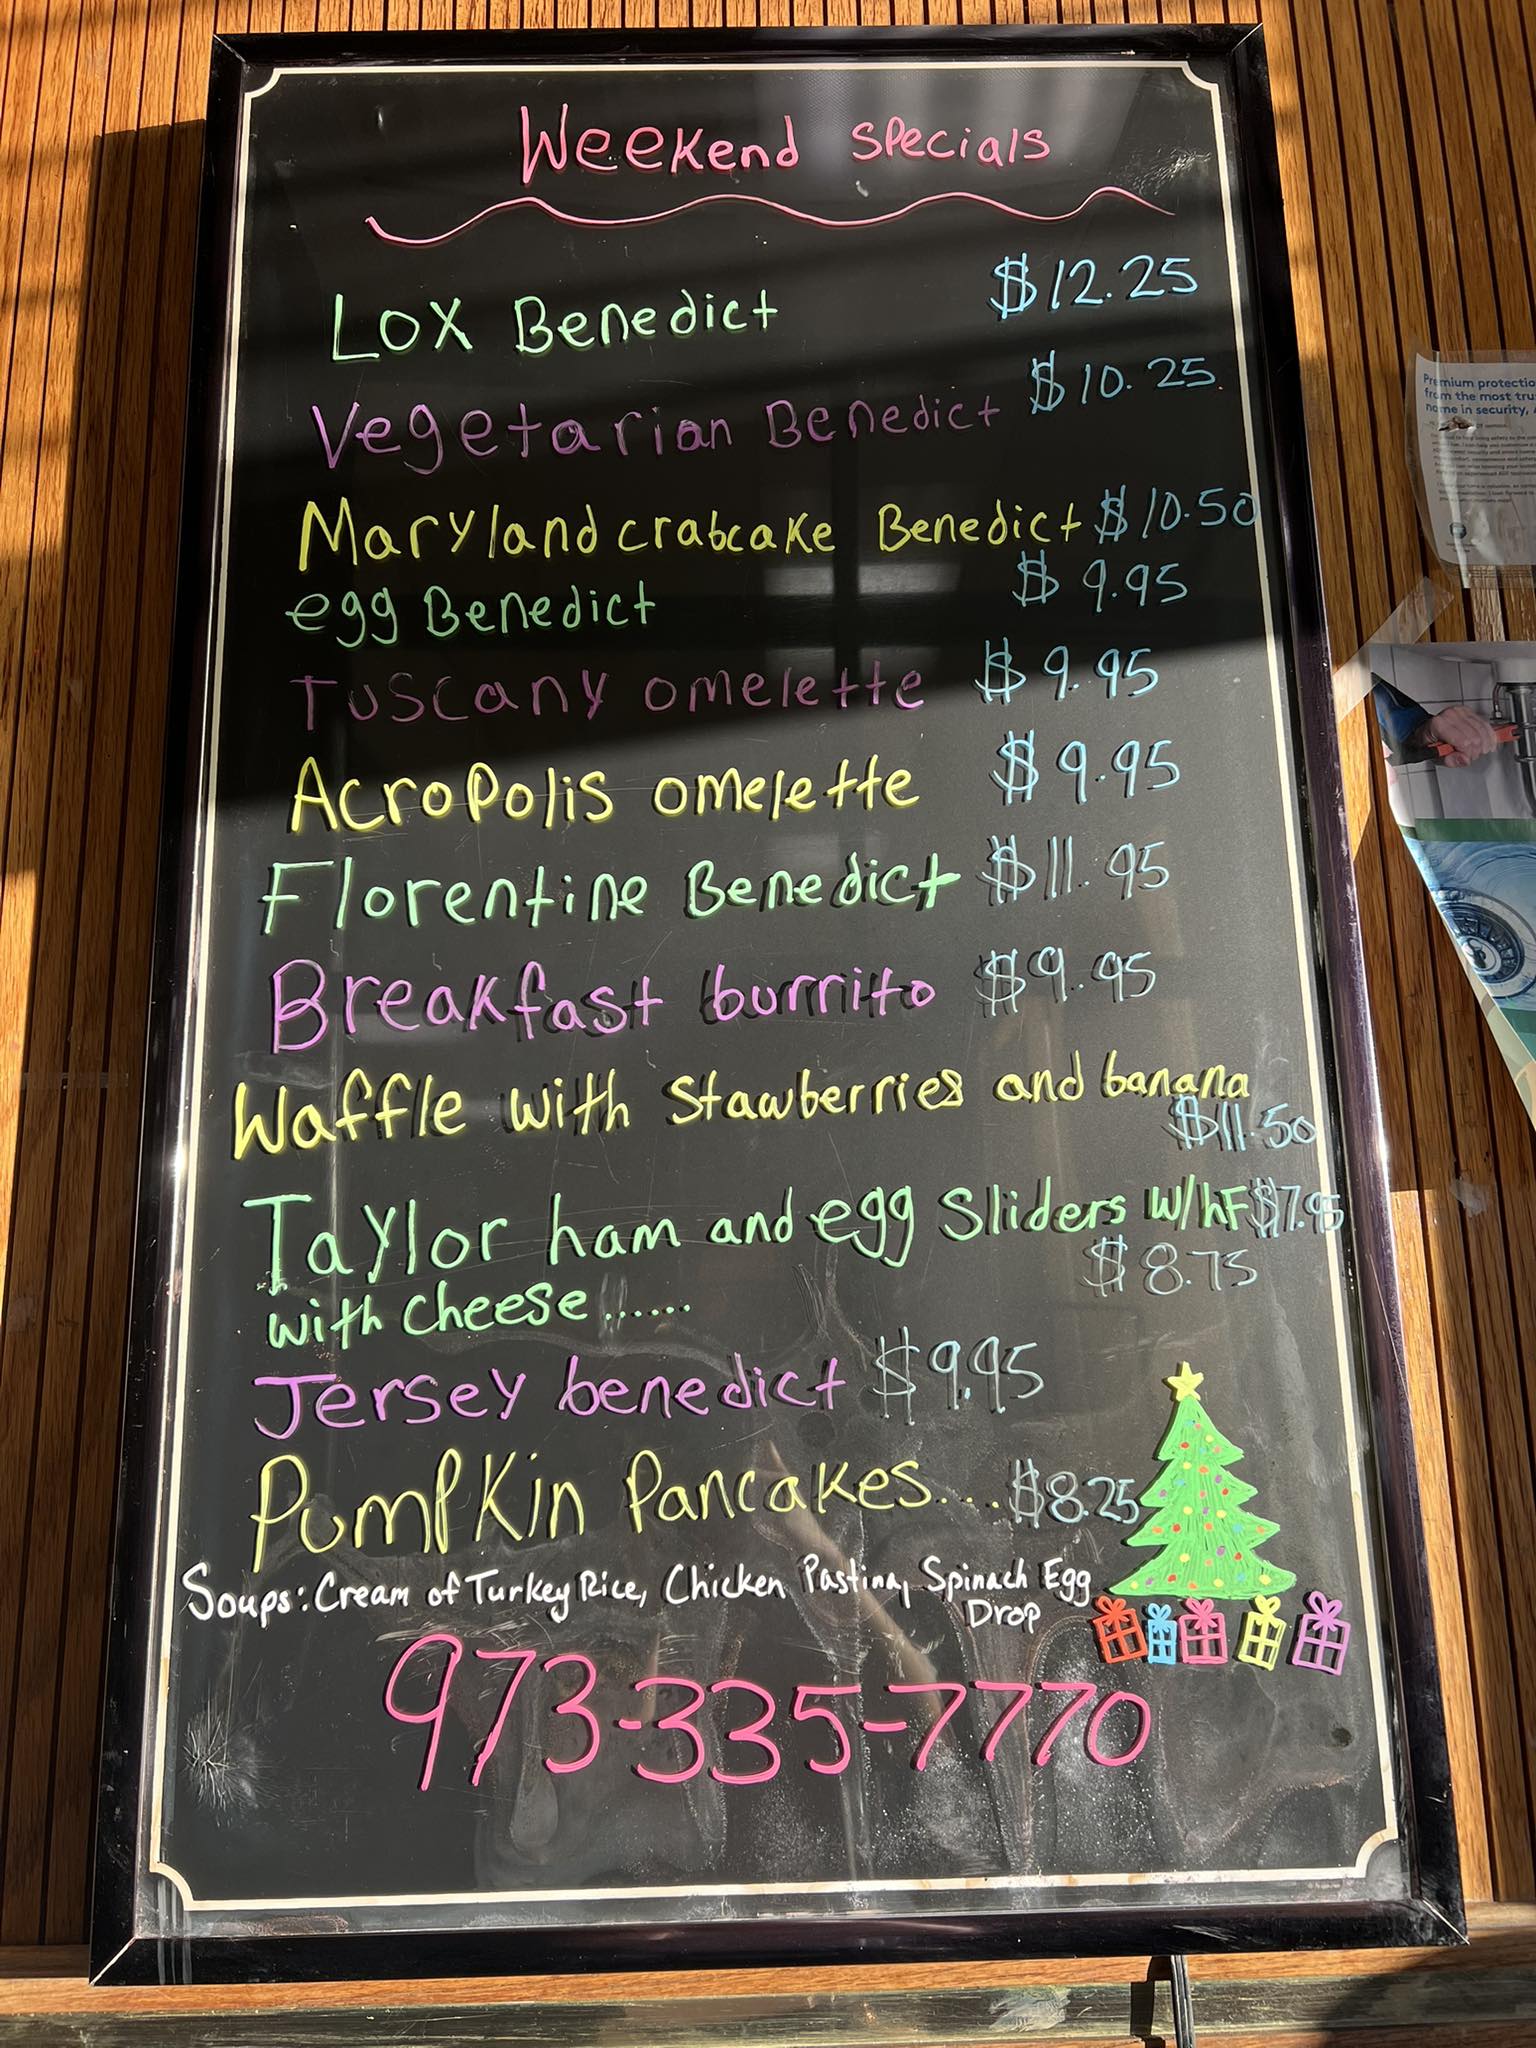 Weekend specials
Lox Benedict $12.25
Vegetarian Benedict $10.25
Maryland crabcake Benedict $10.50
egg Benedict $9.95
Tuscany omelette $9.95
Acropolis omelette $9.95
Florentine Benedict $11.95
Breakfast burrito $9.95
Waffle with Stawberries and banana
$11.50
Taylor ham and egg Sliders w/hF $7.95
with cheese...... $8.75
Jersey benedict $9.95
Pumpkin Pancakes.... $8.25
Soups: Cream of Turkey Rice, Chicken Pastina, Spinach Egg
Drop
973-335-7770
Premium protectio
from the most tru
name in security,